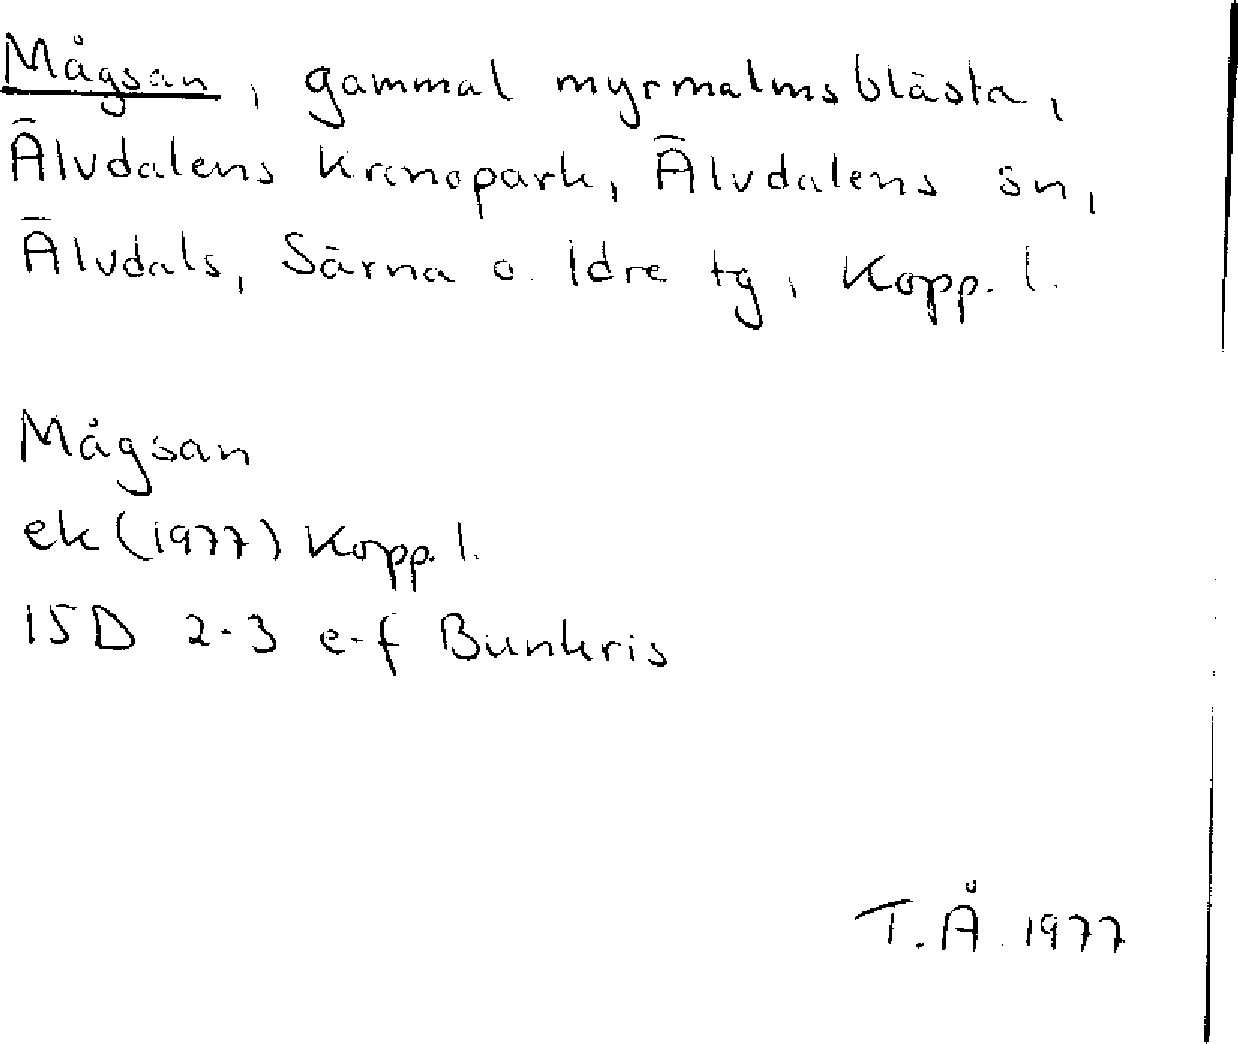 Mågsan, gammal myrmalmsblästa,
Älvdalens kronopark, Älvdalens sn,
Älvdals, Särna o. Idre tg, Kopp. l.
Mågsan
ek (1977) Kopp. l.
15D 2-3 e-f Bunkris
T.Å. 1977